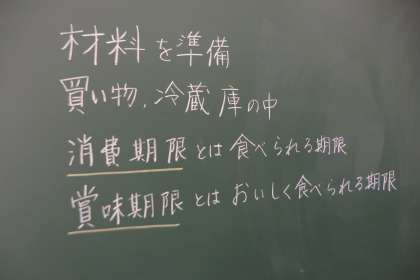 材料を準備
買い物、冷蔵庫の中
消費期限とは食べられる期限
賞味期限とはおいしく食べられる期限